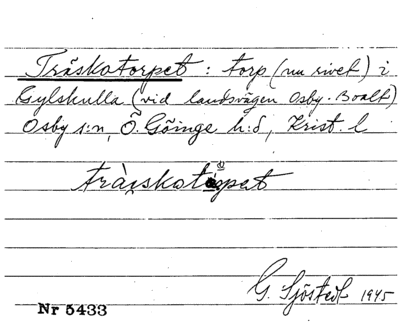 Träskotorpet : torp (nu rivet) i
Gylskulla (vid landsvägen Osby-Boalt)
Osby s:n, Ö. Göinge h:d, Krist. l
tràskotorpet
G. Sjöstedt 1945
Nr 5433